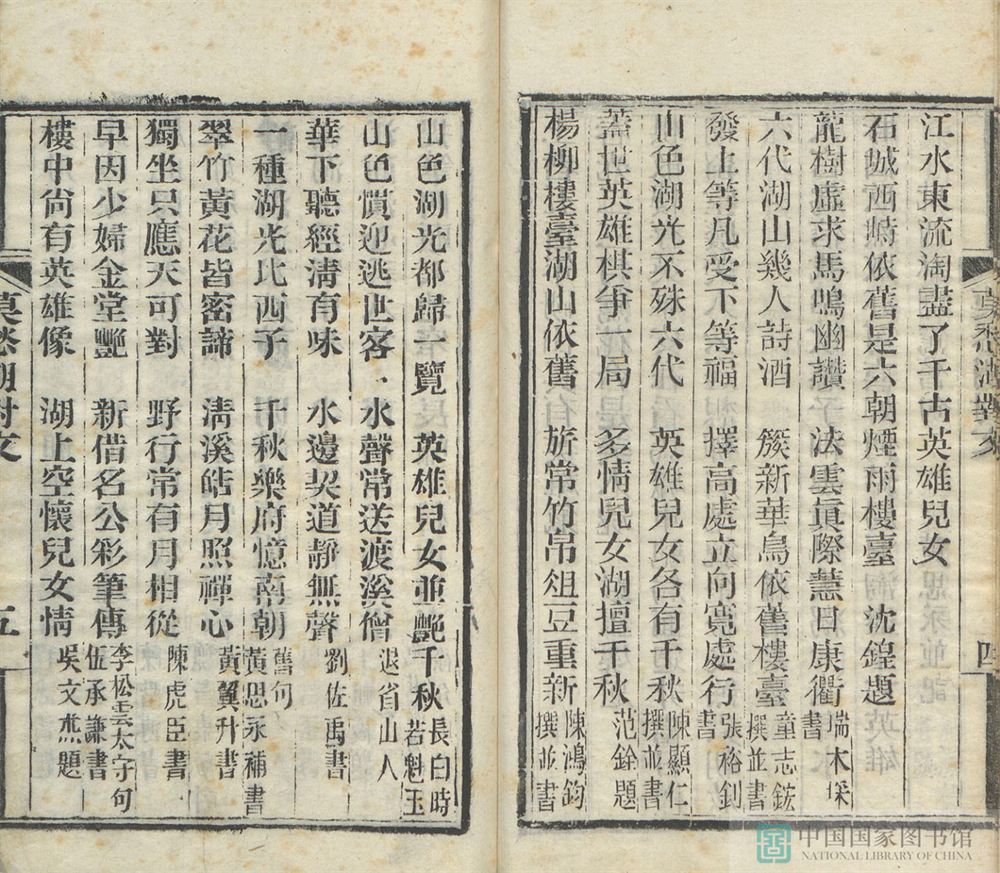 江水東流淘盡了千古英雄兒女
石城西峙依舊是六朝煙雨樓臺 沈鍠題
龍樹虛求馬鳴幽讚 法雲真際慧日康衢 瑞木琛書
六代湖山幾人詩酒 簇新華鳥依舊樓臺 童志鋐撰並書
發上等凡受下等福 擇高處立向寬處行 張裕釗書
山色湖光不殊六代 英雄兒女各有千秋 陳顯仁撰並書
蓋世英雄棋爭一局 多情兒女湖擅千秋 范銓題
楊柳樓臺湖山依舊 旂常竹帛俎豆重新 陳鴻鈞撰並書
莫愁湖對文
四
山色湖光都歸一覽 英雄兒女並艷千秋 長白時若魁玉
山色慣迎逃世客 水聲常送渡溪僧 退省山人
華下聽經淸有味 水邊契道靜無聲 劉佐禹書
一種湖光比西子 千秋樂府憶南朝 舊句 黃思永補書
翠竹黃花皆密諦 淸溪皓月照禪心 黃翼升書
獨坐只應天可對 野行常有月相從 陳虎臣書
早因少婦金堂艷 新借名公彩筆傳 李松雲太守句 伍承謙書
樓中尙有英雄像 湖上空懷兒女情 吳文杰題
莫愁湖對文
五
中国国家图书馆
NATIONAL LIBRARY OF CHINA